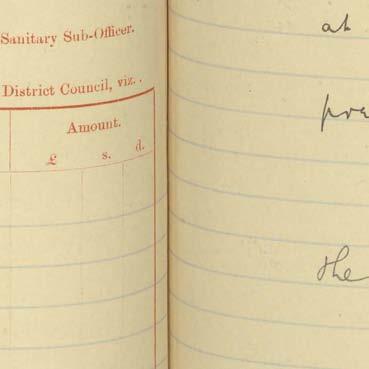 Sanitary Sub-Officer.
District Council, viz. .
Amount.
£ s. d.
at
pre
the